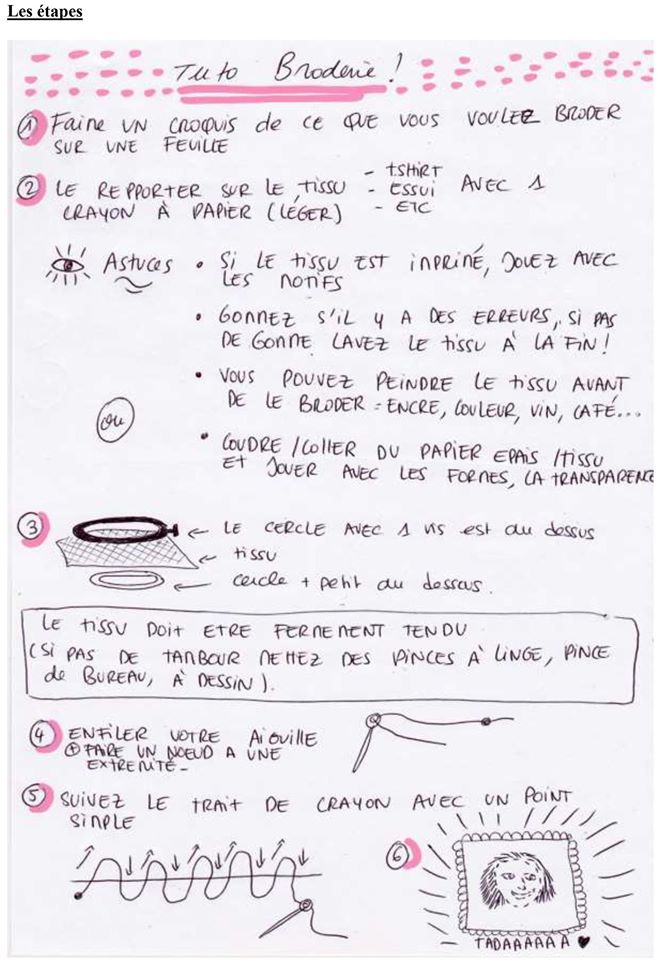 Les étapes
Tuto Broderie !
1 Faire UN CROQUIS de CE QUE VOUS VOULEZ BRODER
SUR UNE FEUILLE
2 LE REPPORTER SUR LE tissu - tSHIRT - ESSUI - ETC AVEC 1
CRAYON À PAPIER (LÉGER)
Astuces • Si LE tissu EST iNPRiNÉ, JOUEZ AVEC
LES NOTIFS
• GONNEZ S'iL Y A DES ERREURS, Si PAS
DE GONNE LAVEZ LE tissu À LA FiN !
• VOUS POUVEZ PEINDRE LE tissu AVANT
DE LE BRODER = ENCRE, COULEUR, VIN, CAFÉ...
ou
• COUDRE / COLLER DU PAPIER EPAIS / tissu
ET JOUER AVEC LES FORNES, LA TRANSPARENCE
3 ← LE CERCLE AVEC 1 VIS est au dessus
← tissu
← cercle + petit au dessous.
LE tissu DOIT ETRE FERNENENT TENDU
(Si PAS DE TANBOUR NETTEZ DES PINCES À LINGE, PINCE
de BUREAU, À DESSIN).
4 ENFILER VOTRE AiGUiLLE
+ FAIRE UN NOEUD A UNE
EXTRENITÉ -
5 SUIVEZ LE TRAIT DE CRAYON AVEC UN POINT
SiNPLE
6
TADAAAAAA ♥